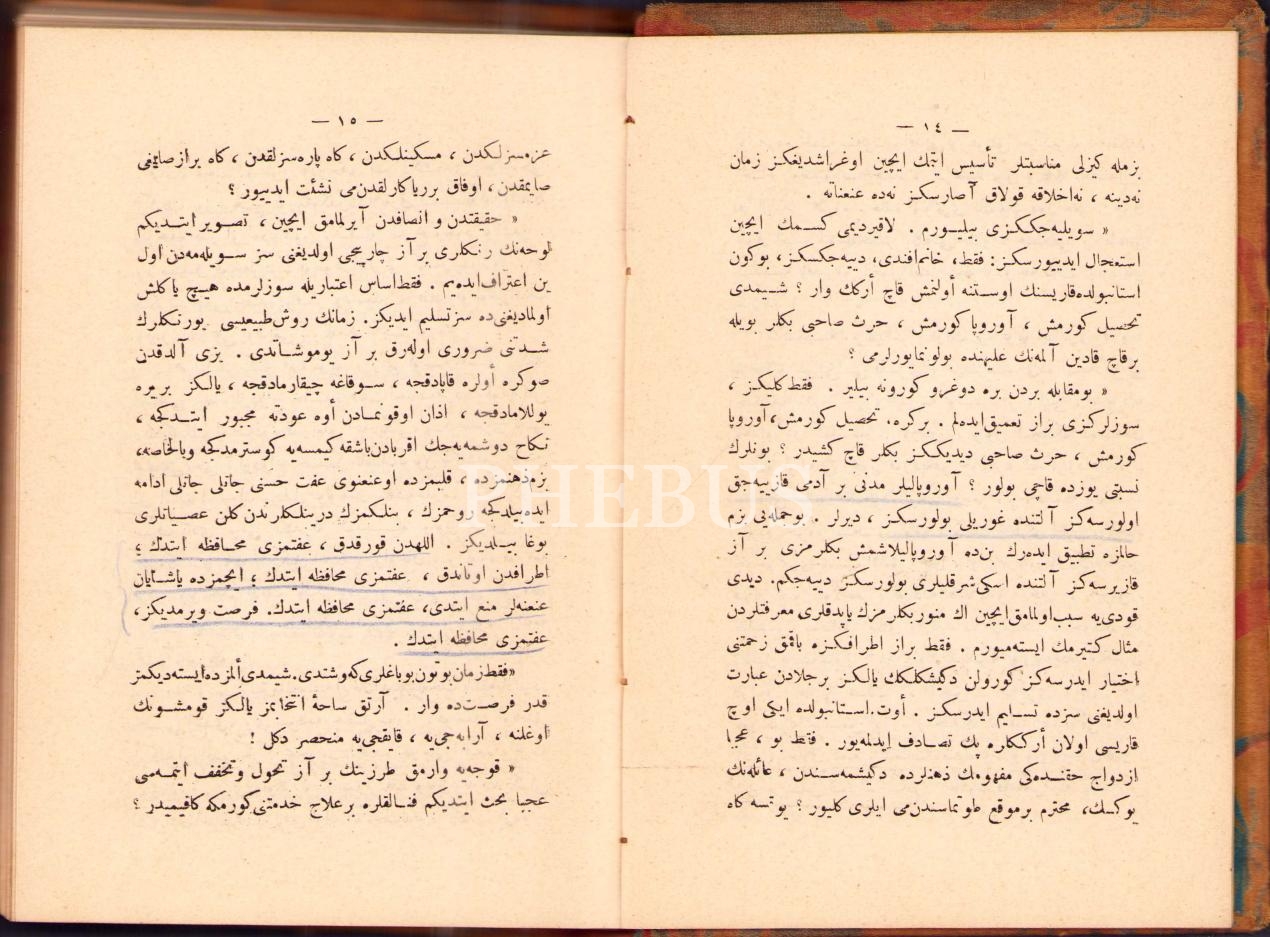 — ١٤ —
بزمله كيزلى مناسبتلر تأسيس ايتمك ايچين اوغراشديغكز زمان
نه‌دينه ، نه‌اخلاقه قولاق آصارسكز نه‌ده عنعناته .
« سويليه‌جككزى بيليورم . لاقيرديمى كسمك ايچين
استعجال ايدييورسكز: فقط، خانم‌افندى، دييه‌جكسكز، بوكون
استانبولده‌قاريسنك اوستنه أولنمش قاچ أركك وار ؟ شيمدى
تحصيل كورمش ، آوروپا كورمش ، حرث صاحبى بكلر بويله
برقاچ قادين آلمه‌نك عليهنده بولونمايورلرمى ؟
« بومقابله بردن بره دوغرو كورونه بيلير . فقط كليكز ،
سوزلركزى براز تعميق‌ايده‌لم . بركره، تحصيل كورمش، آوروپا
كورمش ، حرث صاحبى ديديككز بكلر قاچ كشيدر ؟ بونلرك
نسبتى يوزده قاچى بولور ؟ آوروپاليلر مدنى بر آدمى قازييه‌جق
اولورسه‌كز آلتنده غوريلى بولورسكز ، ديرلر . بوجمله‌يى بزم
حالمزه تطبيق ايده‌رك بن‌ده آوروپاليلاشمش بكلرمزى بر آز
قازيرسه‌كز آلتنده اسكى‌شرقليلرى بولورسكز دييه‌جكم. ديدى
قودى‌يه سبب‌اولمامق‌ايچين اك منور بكلرمزك ياپدقلرى معرفتلردن
مثال كتيرمك ايسته‌ميورم . فقط براز اطرافكزه باقمق زحمتنى
اختيار ايدرسه‌كز كورولن دكيشكلكك يالكز برجلادن عبارت
اولديغنى سزده تسليم ايدرسكز . أوت.استانبولده ايكى اوچ
قاريسى اولان أرككلره پك تصادف ايدلمه‌يور . فقط بو ، عجبا
ازدواج حقنده‌كى مفهومك ذهنلرده دكيشمه‌سندن ، عائله‌نك
يوكسك، محترم برموقع طوتماسندن‌مى ايلرى كليور ؟ يوقسه كاه
— ١٥ —
عزمسزلكدن ، مسكينلكدن ، كاه پاره‌سزلقدن ، كاه براز‌صايغى
صايمقدن ، اوفاق برريا‌كارلقدن‌مى نشئت ايدييور ؟
« حقيقتدن و انصافدن آيرلمامق ايچين ، تصوير ايتديكم
لوحه‌نك رنكلرى بر آز چارپيجى اولديغنى سز سويله‌مه‌دن اول
بن اعتراف‌ايده‌يم . فقط‌اساس اعتباريله سوزلرمده هيچ ياكلش
اولماديغنى‌ده سز‌تسليم ايديكز. زمانك روش‌طبيعيسى بورنكلرك
شدتنى ضرورى اوله‌رق بر آز يوموشاتدى . بزى آلدقدن
صوكره أولره قاپادقجه ، سوقاغه چيقارمادقجه ، يالكز بريره
يوللامادقجه ، اذان اوقونمادن أوه عودته مجبور ايتدكجه ،
نكاح دوشمه‌يه‌جك اقربادن‌باشقه كيمسه‌يه كوسترمدكجه وبالخاصه،
بزم‌ذهنمزده ، قلبمزده اوعنعنوى عفت حسنى جانلى جانلى ادامه
ايده‌بيلدكجه روحمزك ، بنلكمزك درينلكلرندن كلن عصيانلرى
بوغا بيلديكز . اللهدن قورقدق ، عفتمزى محافظه ايتدك ؛
اطرافدن اوتاندق ، عفتمزى محافظه ايتدك ؛ ايچمزده ياشايان
عنعنه‌لر منع ايتدى، عفتمزى محافظه ايتدك. فرصت ويرمديكز،
عفتمزى محافظه ايتدك .
«فقط‌زمان بوتون‌بوباغلرى‌كه‌وشتدى. شيمدى‌ألمزده‌ايسته‌ديكمز
قدر فرصت‌ده وار . آرتق ساحۀ انتخابمز يالكز قومشونك
اوغلنه ، آرابه‌جى‌يه ، قايقجى‌يه منحصر دكل !
« قوجه‌يه وارمق طرزينك بر آز تحول وتخفف ايتمه‌سى
عجبا بحث ايتديكم فنالقلره برعلاج خدمتنى‌كورمكه كافيميدر ؟
PHEBUS